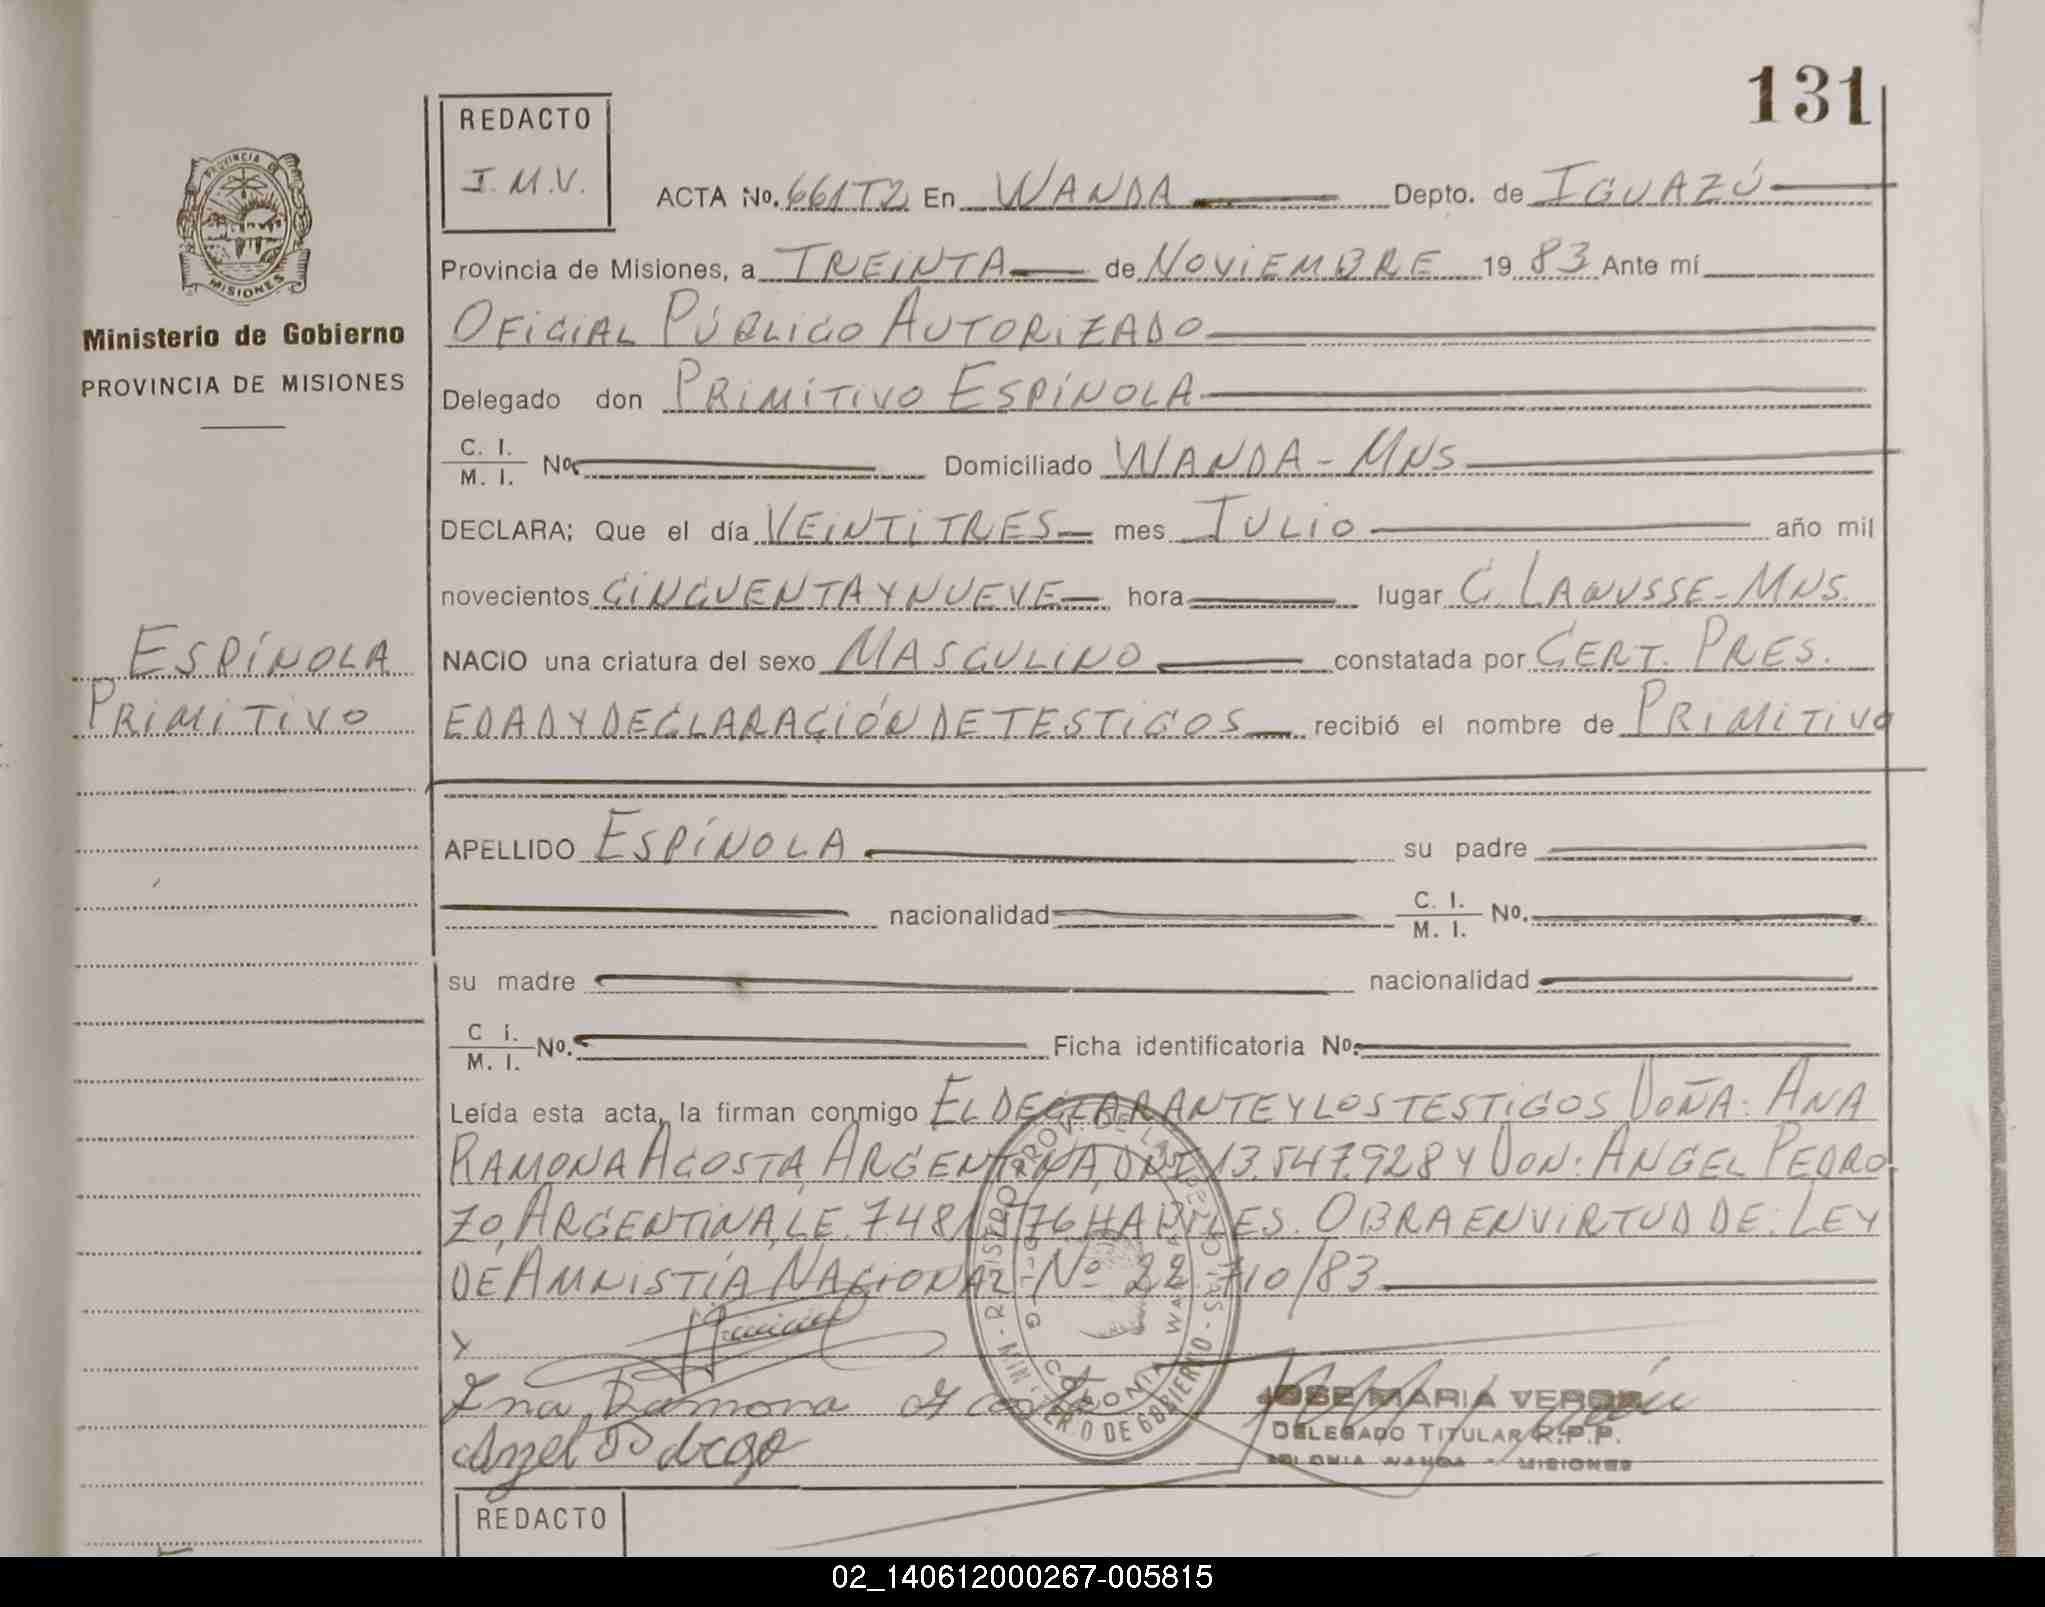 131
REDACTO
I.M.V.
PROVINCIA DE
MISIONES
ACTA No. 661T2 En WANDA Depto. de IGUAZÚ
Provincia de Misiones, a TREINTA de NOVIEMBRE 1983 Ante mí
Ministerio de Gobierno
OFICIAL PÚBLICO AUTORIZADO
PROVINCIA DE MISIONES
Delegado don PRIMITIVO ESPÍNOLA
C. I.
M. I. No. Domiciliado WANDA - MNS
DECLARA; Que el día VEINTITRES mes JULIO año mil
novecientos CINCUENTA Y NUEVE hora lugar C. LANUSSE - MNS.
ESPÍNOLA
NACIO una criatura del sexo MASCULINO constatada por CERT. PRES.
PRIMITIVO
EDAD Y DECLARACIÓN DE TESTIGOS recibió el nombre de PRIMITIVO
APELLIDO ESPÍNOLA su padre
nacionalidad C. I. M. I. No.
su madre nacionalidad
C I. M. I. No. Ficha identificatoria No.
Leída esta acta, la firman conmigo EL DECLARANTE Y LOS TESTIGOS DOÑA: ANA
RAMONA ACOSTA, ARGENTINA, DNI 13.547.928 Y DON: ANGEL PEDRO
ZO, ARGENTINA, LE. 748 76 HABILES. OBRA EN VIRTUD DE: LEY
DE AMNISTÍA NACIONAL Nº 22.710/83
Ana Ramona Acosta
Angel
COLONIA WANDA
MINISTERIO DE GOBIERNO
JOSE MARIA VERON
DELEGADO TITULAR R.P.P.
COLONIA WANDA - MISIONES
REDACTO
02_140612000267-005815